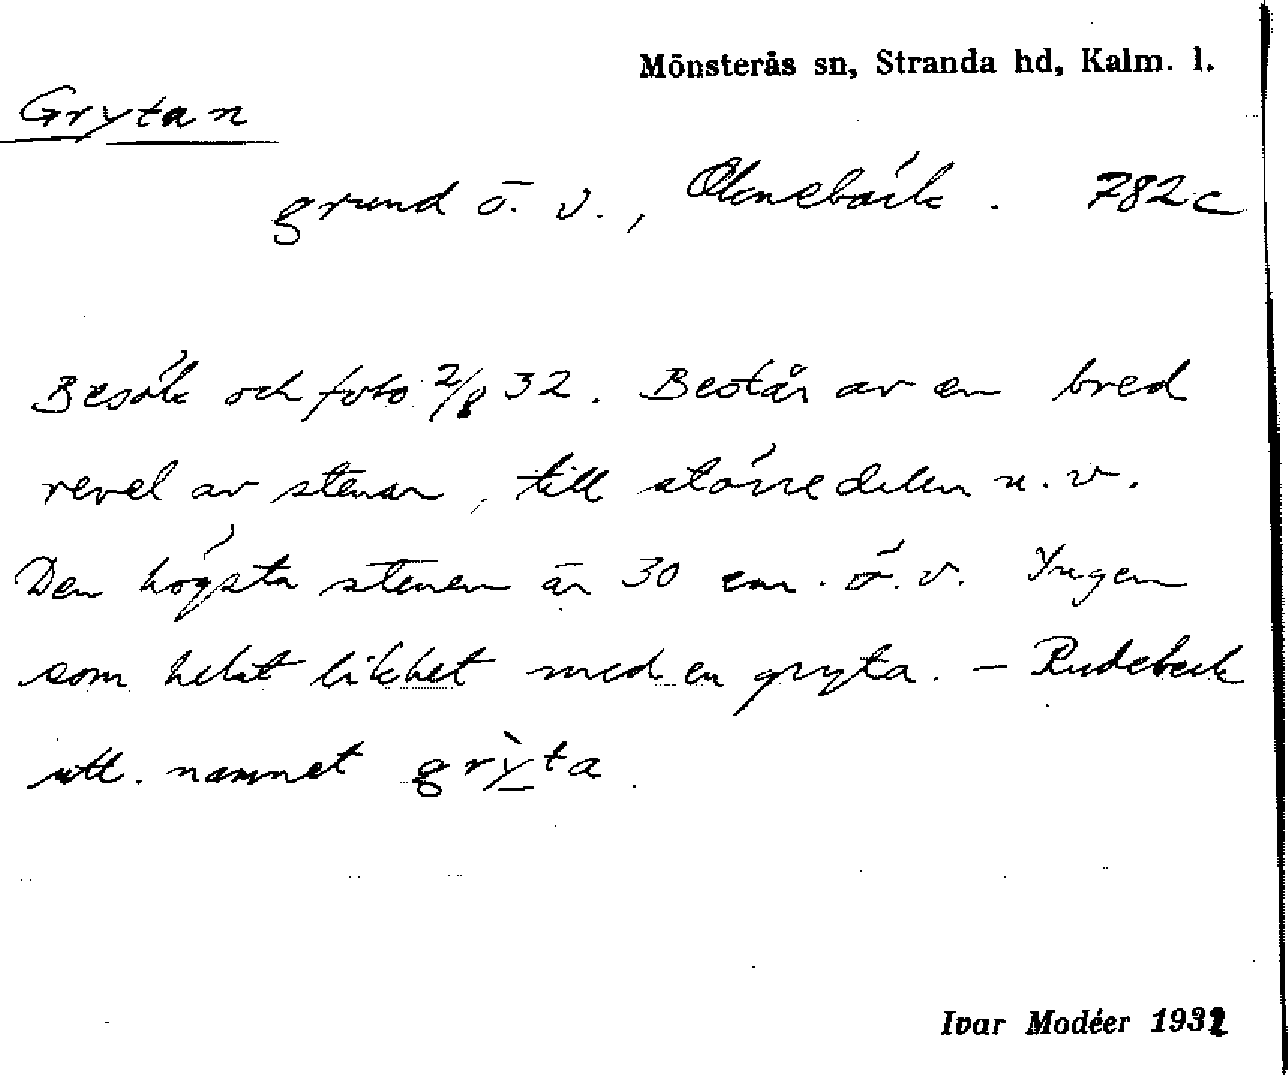 Mönsterås sn, Stranda hd, Kalm. l.
Grytan
grund ö. v., Oknebäck. 782c
Besök och foto 2/8 32. Består av en bred
revel av stenar, till större delen u. v.
Den högsta stenen är 30 cm. ö. v. Ingen
som helst likhet med en gryta. – Rudebeck
utt. namnet grỳta.
Ivar Modéer 1932